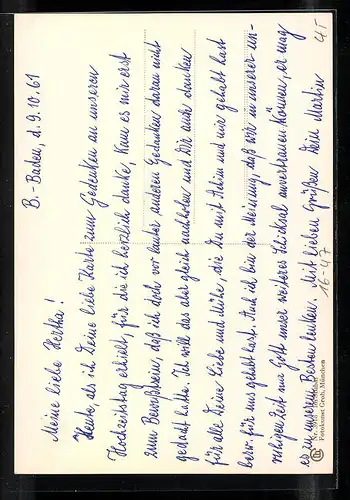 B.-Baden, d. 9.10.61
Meine liebe Hertha!
Heute, als ich Deine liebe Karte zum Gedenken an unseren
Hochzeitstag erhielt, für die ich herzlich danke, kam es mir erst
zum Bewußtsein, daß ich doch vor lauter anderen Gedanken daran nicht
gedacht hatte. Ich will das aber gleich nachholen und Dir auch danken
für alle Deine Liebe und Mühe, die Du mit Achim und mir gehabt hast
bezw. für uns gehabt hast. Auch ich bin der Meinung, daß wir in unserer un-
ruhigen Zeit nur Gott unser weiteres Schicksal anvertrauen können, er mag
es zu unserem Besten lenken. Mit lieben Grüßen Dein Martin
16-47
Fotokunst Groh, München